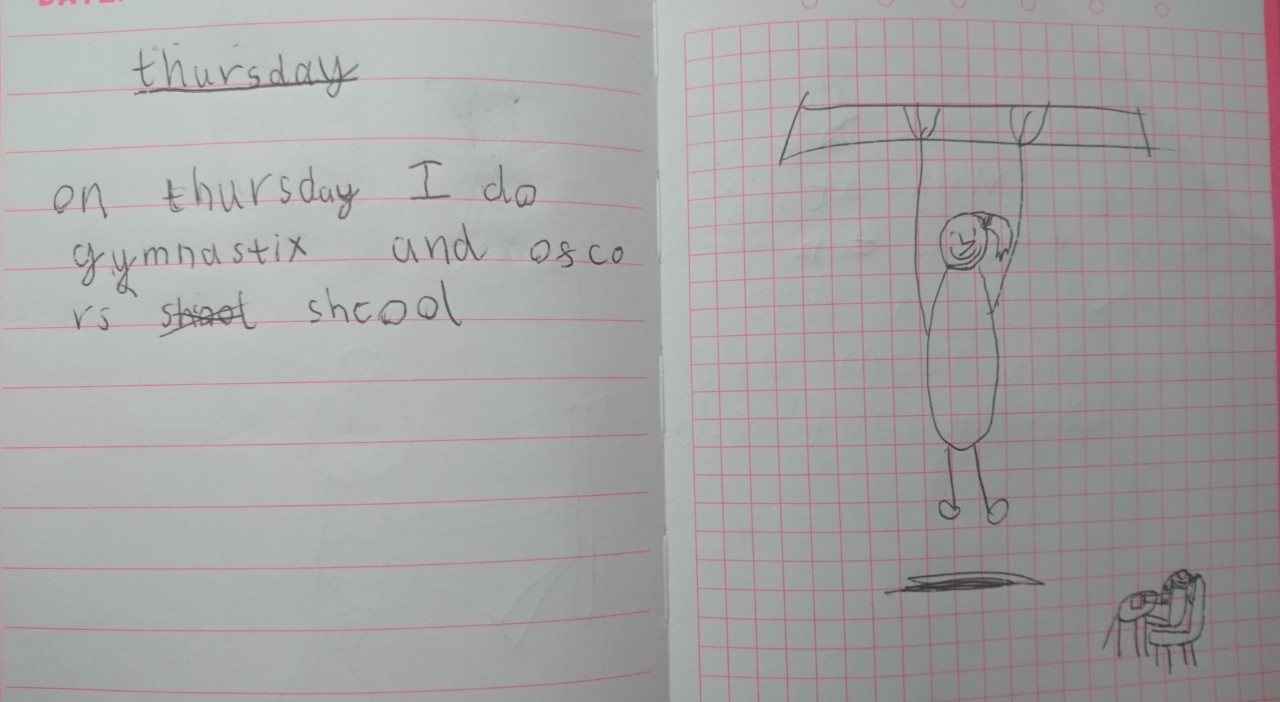 thursday
on thursday I do
gymnastix and osco
rs shcool